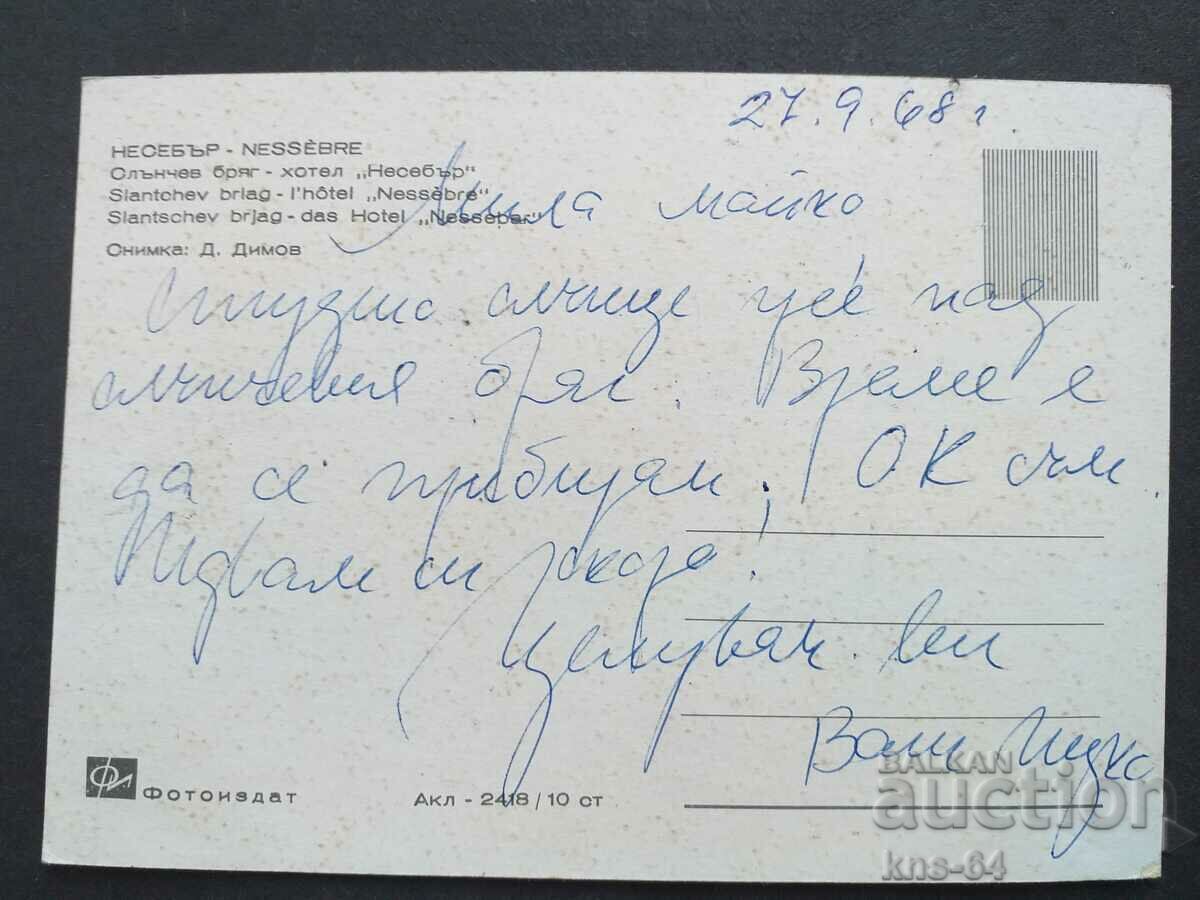 27.9.68 г.
НЕСЕБЪР - NESSÈBRE
Слънчев бряг - хотел „Несебър"
Slantchev briag - l'hôtel „Nessèbre"
Slantschev brjag - das Hotel „Nessebar"
Снимка: Д. Димов
Мила майко
Студено слънце грее над
слънчевия бряг. Време е
да се прибирам. ОК съм.
Идвам си скоро!
Целувам ви
Ваш
Фотоиздат
Акл - 2418/10 ст
BALKAN
auction
kns-64